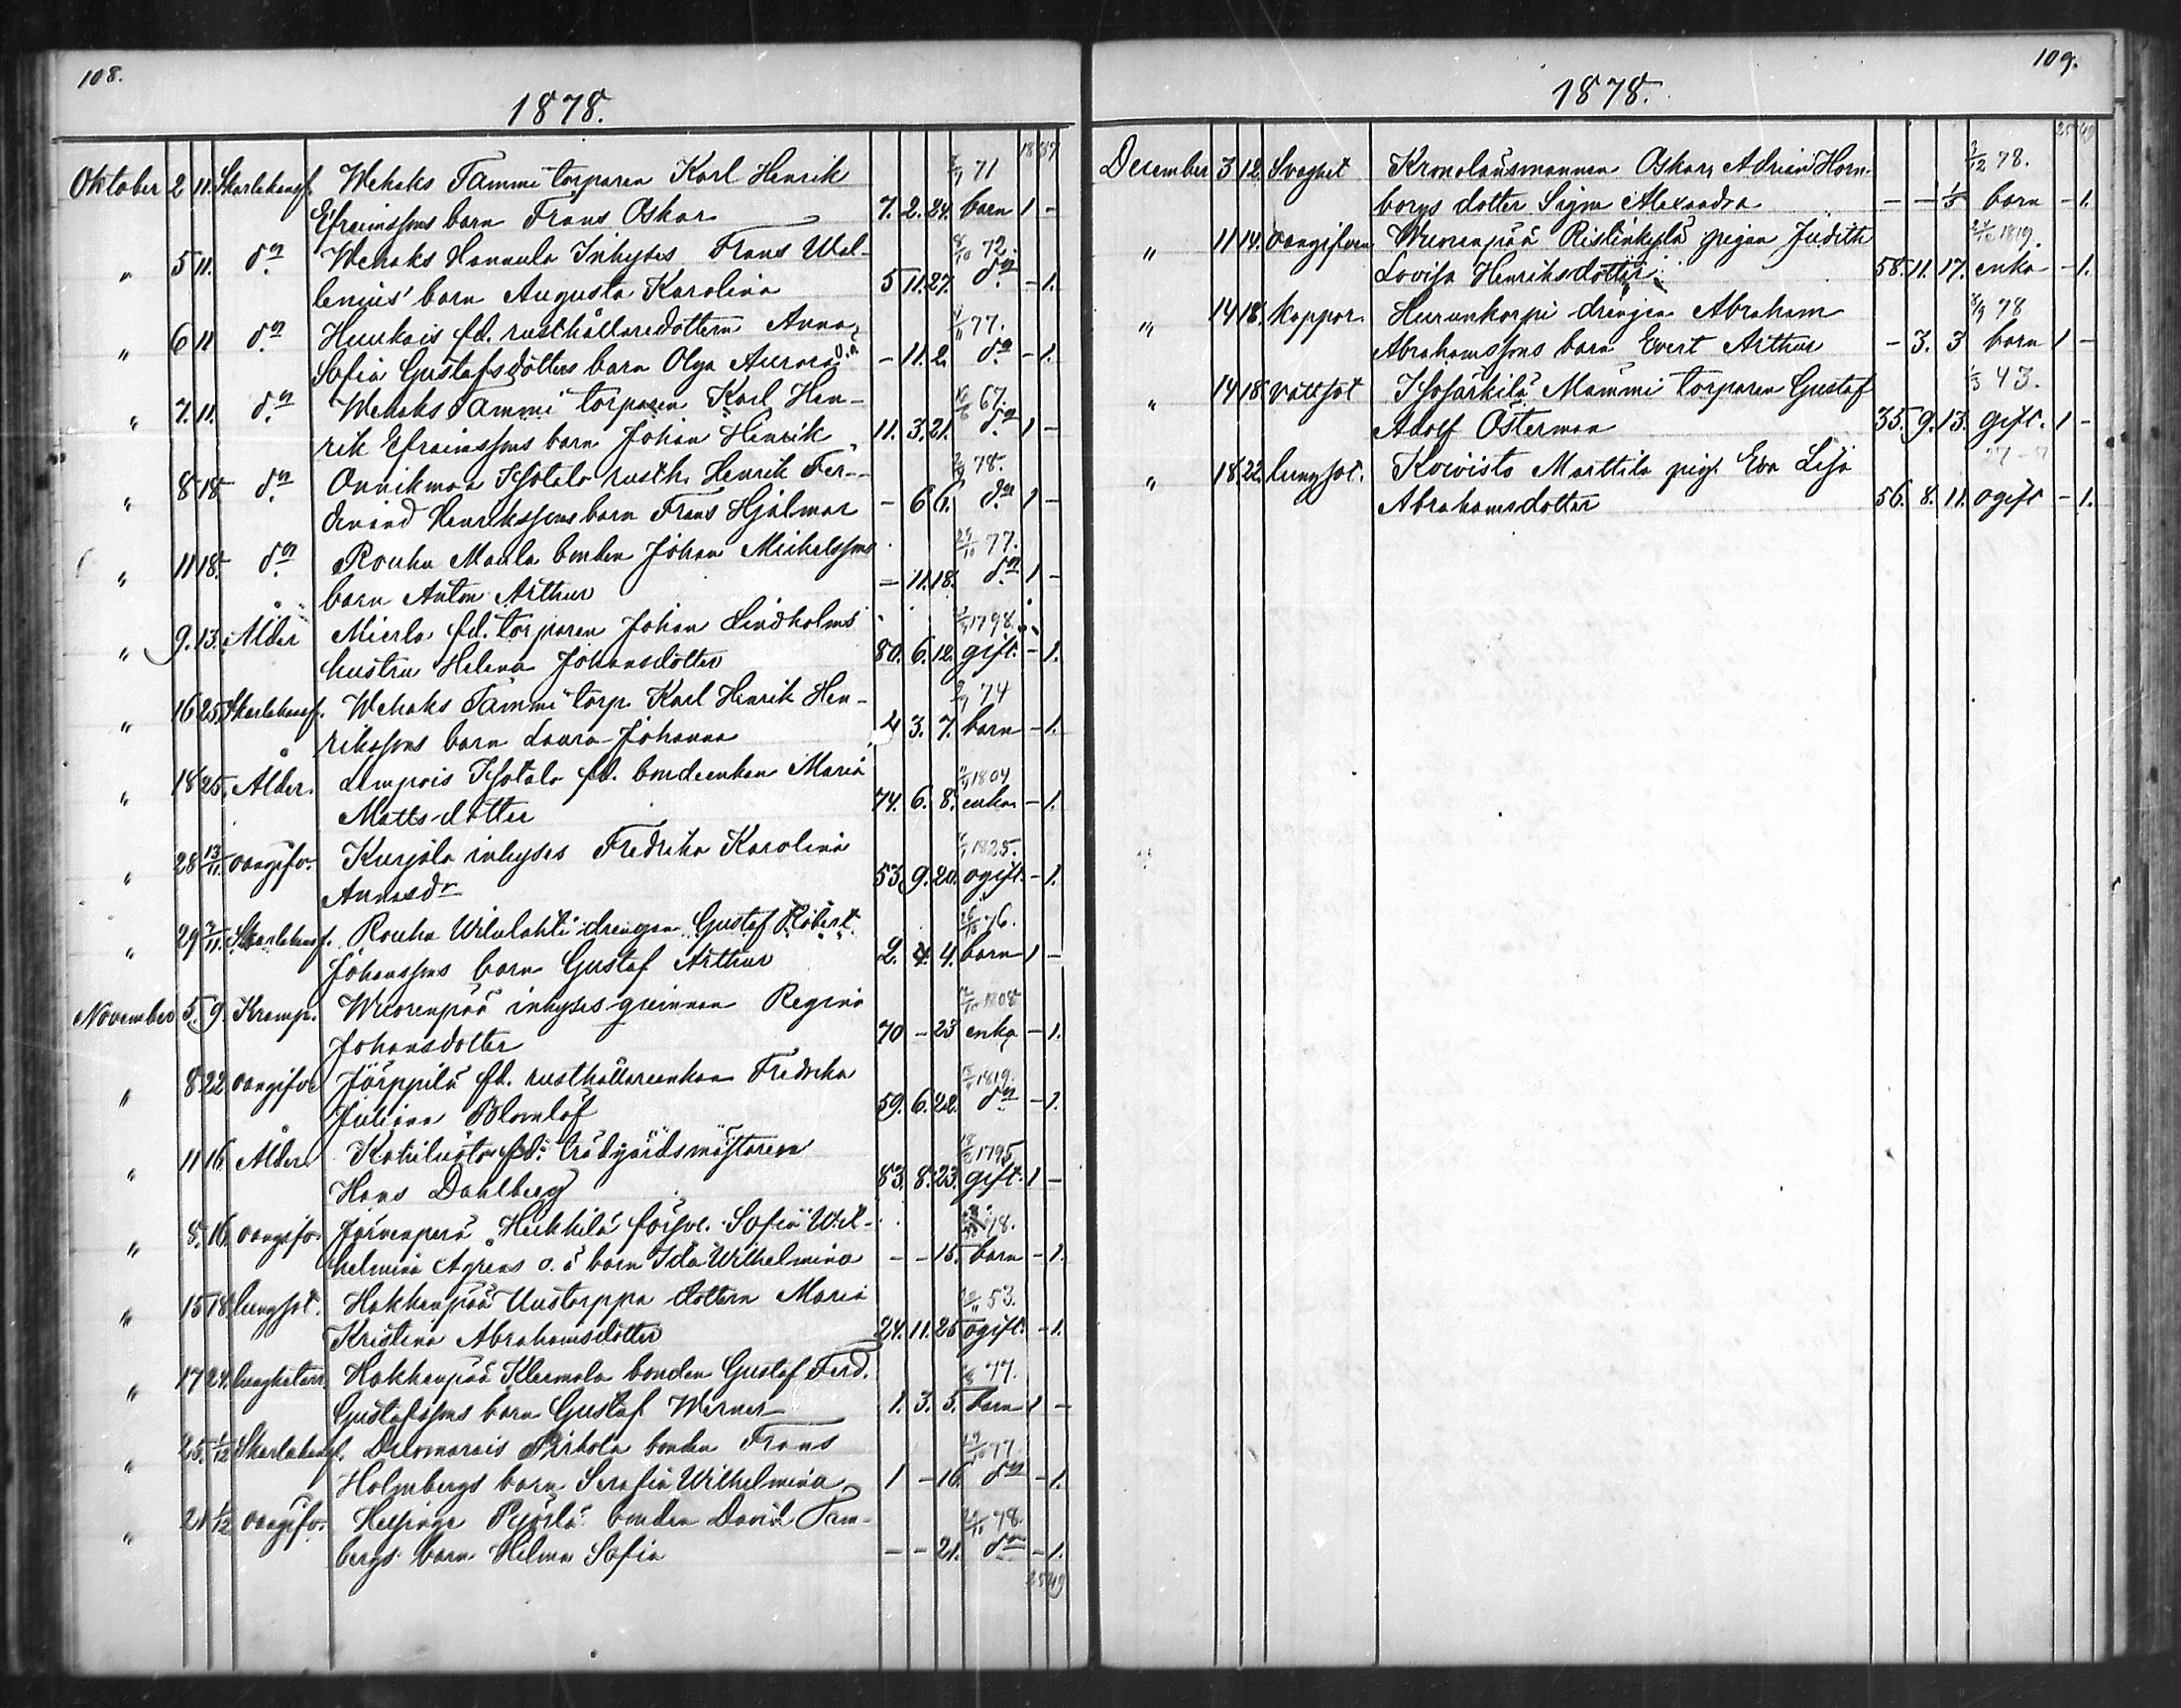 108.
1878.
18 37
Oktober 2 11. Skarlakansf. Wehaks Tammi torparen Karl Henrik 71
Efraimssons barn Frans Oskar 7. 2. 24. barn 1 -
" 5 11. do Wehaks Hannula Inhyses Frans Wal- 8/10 72.
lenius' barn Augusta Karolina 5 11. 27. do - 1.
" 6 11 do Huukais fd. rusthållaredottern Anna 77.
Sofia Gustafsdotters barn Olga Aurora o.ä - 11. 2. do - 1.
" 7. 11. do Wehaks Tammi torparen Karl Hen- 67.
rik Efraimssons barn Johan Henrik 11. 3. 21. do 1 -
" 8 18 do Onnikmaa Isotalo rusth. Henrik Fer- 78.
dinand Henrikssons barn Frans Hjalmar - 6 6. do 1 -
" 11 18. do Rouhu Maula bonden Johan Michelssons 77.
barn Anton Arthur - 11. 18. do 1 -
" 9. 13. Ålder Mierla fd. torparen Johan Lindholms 1798.
hustru Helena Johansdotter 80. 6. 12. gift. - 1.
" 16 25 Skarlakansf. Wehaks Tammi torp. Karl Henrik Hen- 74
rikssons barn Laura Johanna 4 3. 7. barn - 1.
" 18 25. Ålder. Lempois Isotalo fd. bondeenkan Maria 1804
Mattsdotter 74. 6. 8. enka - 1.
" 28 13/11. oangifv. Kurjala inhyses Fredrika Karolina 1825.
Annasdr 53. 9. 20. ogift. - 1.
" 29 /11. Skarlakansf. Rouhu Wilulahti drengen Gustaf Robert 26/10 76.
Johanssons barn Gustaf Arthur 2. 4. 4. barn 1 -
November 5. 9. Kramp. Wuorenpää inhyses qvinnan Regina 1808
Johansdotter 70 - 23 enka - 1.
" 8 22 oangifven Järppilä fd. rusthållareenkan Fredrika 1819.
Juliana Blomlöf 59. 6. 22. do - 1.
" 11 16. Ålder Kahiluoto fd. trädgårdsmästaren 18/ 1795
Hans Dahlberg 83. 8. 23. gift. 1 -
" 8. 16. oangifv. Järvenperä Heikkilä försv. Sofia Wil- 78.
helmina Ågrens o.ä barn Ida Wilhelmina - - 15. barn - 1.
" 15 18 lungsot. Hakkenpää Uustorppa dottern Maria 53.
Kristina Abrahamsdotter 24. 11. 25 ogift. - 1.
" 17 24. Hakkenpää Kleemola bonden Gustaf Ferd. 77.
Gustafssons barn Gustaf Werner 1. 3. 5. barn 1 -
" 25. 1/12 Skarlakansf. Pirkola bonden Frans 77
Holmbergs barn Serafia Wilhelmina 1 - 16. do - 1.
" 21 1/12 oangifv. Helsinge Pyörlä bonden David Tam- 78.
bergs barn Hilma Sofia - - 21. do - 1.
25 49
109.
1878.
25 49
December 3 12. Svaghet Kronolänsmannen Oskar Adrian Horn- 2/12 78.
borgs dotter Signe Alexandra - - 1/5 barn - 1.
" 11 14. oangifven Wuorenpää Ristinkylä pigan Judith 1819.
Lovisa Henriksdotter 58. 11. 17. enka - 1.
" 14 18. Koppor. Hurunkorpi drengen Abraham 78
Abrahamssons barn Evert Arthur - 3. 3 barn 1 -
" 14 18. vattsot Isosärkilä Mammi torparen Gustaf 1/3 43.
Adolf Österman 35. 9. 13. gift. 1 -
" 18. 22. lungsot. Koivisto Marttila pig. Eva Lisa
Abrahamsdotter 56. 8. 11. ogift - 1.